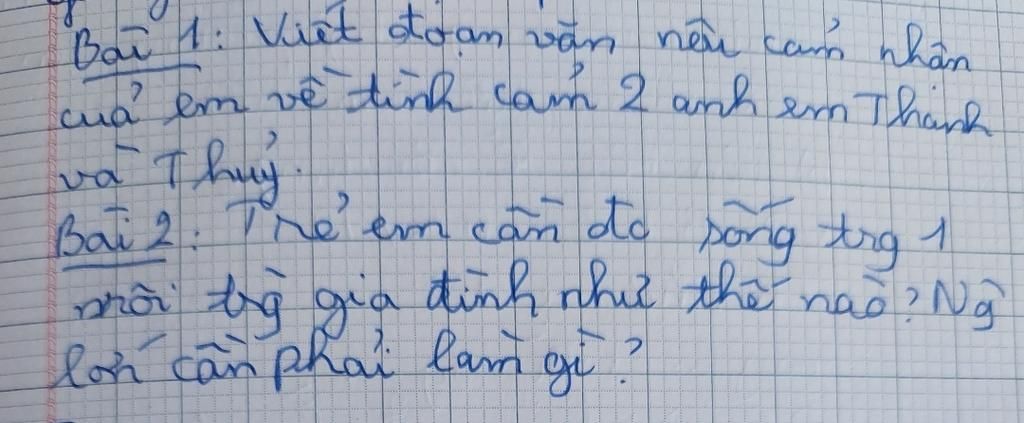 Bài 1: Viết đoạn văn nêu cảm nhận
của em về tình cảm 2 anh em Thành
và Thuỷ.
Bài 2: Trẻ em cần đc sống trg 1
môi trg gia đình như thế nào? Ng
lớn cần phải làm gì?